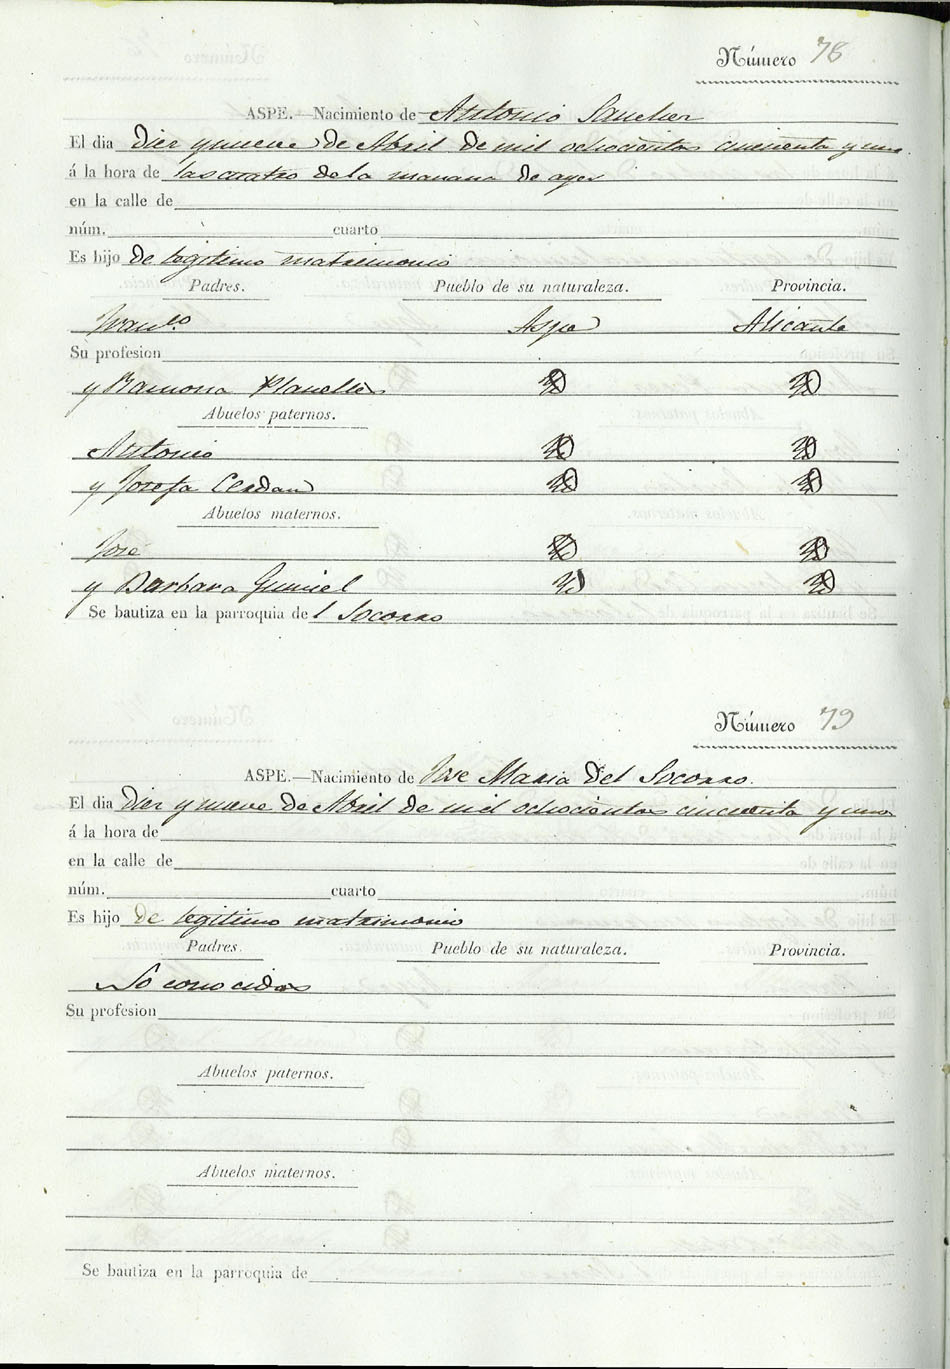 Número 78
ASPE.—Nacimiento de Antonio Sanchez
El dia Diez y nueve de Abril de mil ochocientos cincuenta y uno
á la hora de las cuatro de la manana de ayer
en la calle de
núm. cuarto
Es hijo de legitimo matrimonio
Padres. Pueblo de su naturaleza. Provincia.
Franco Aspe Alicante
Su profesion
y Ramona Planelles
Abuelos paternos.
Antonio
y Josefa Cerdan
Abuelos maternos.
José
y Barbara Gumiel
Se bautiza en la parroquia del Socorro
Número 79
ASPE.—Nacimiento de Jose Maria del Socorro.
El dia Diez y nueve de Abril de mil ochocientos cincuenta y uno
á la hora de
en la calle de
núm. cuarto
Es hijo de legitimo matrimonio
Padres. Pueblo de su naturaleza. Provincia.
conocidos
Su profesion
Abuelos paternos.
Abuelos maternos.
Se bautiza en la parroquia de